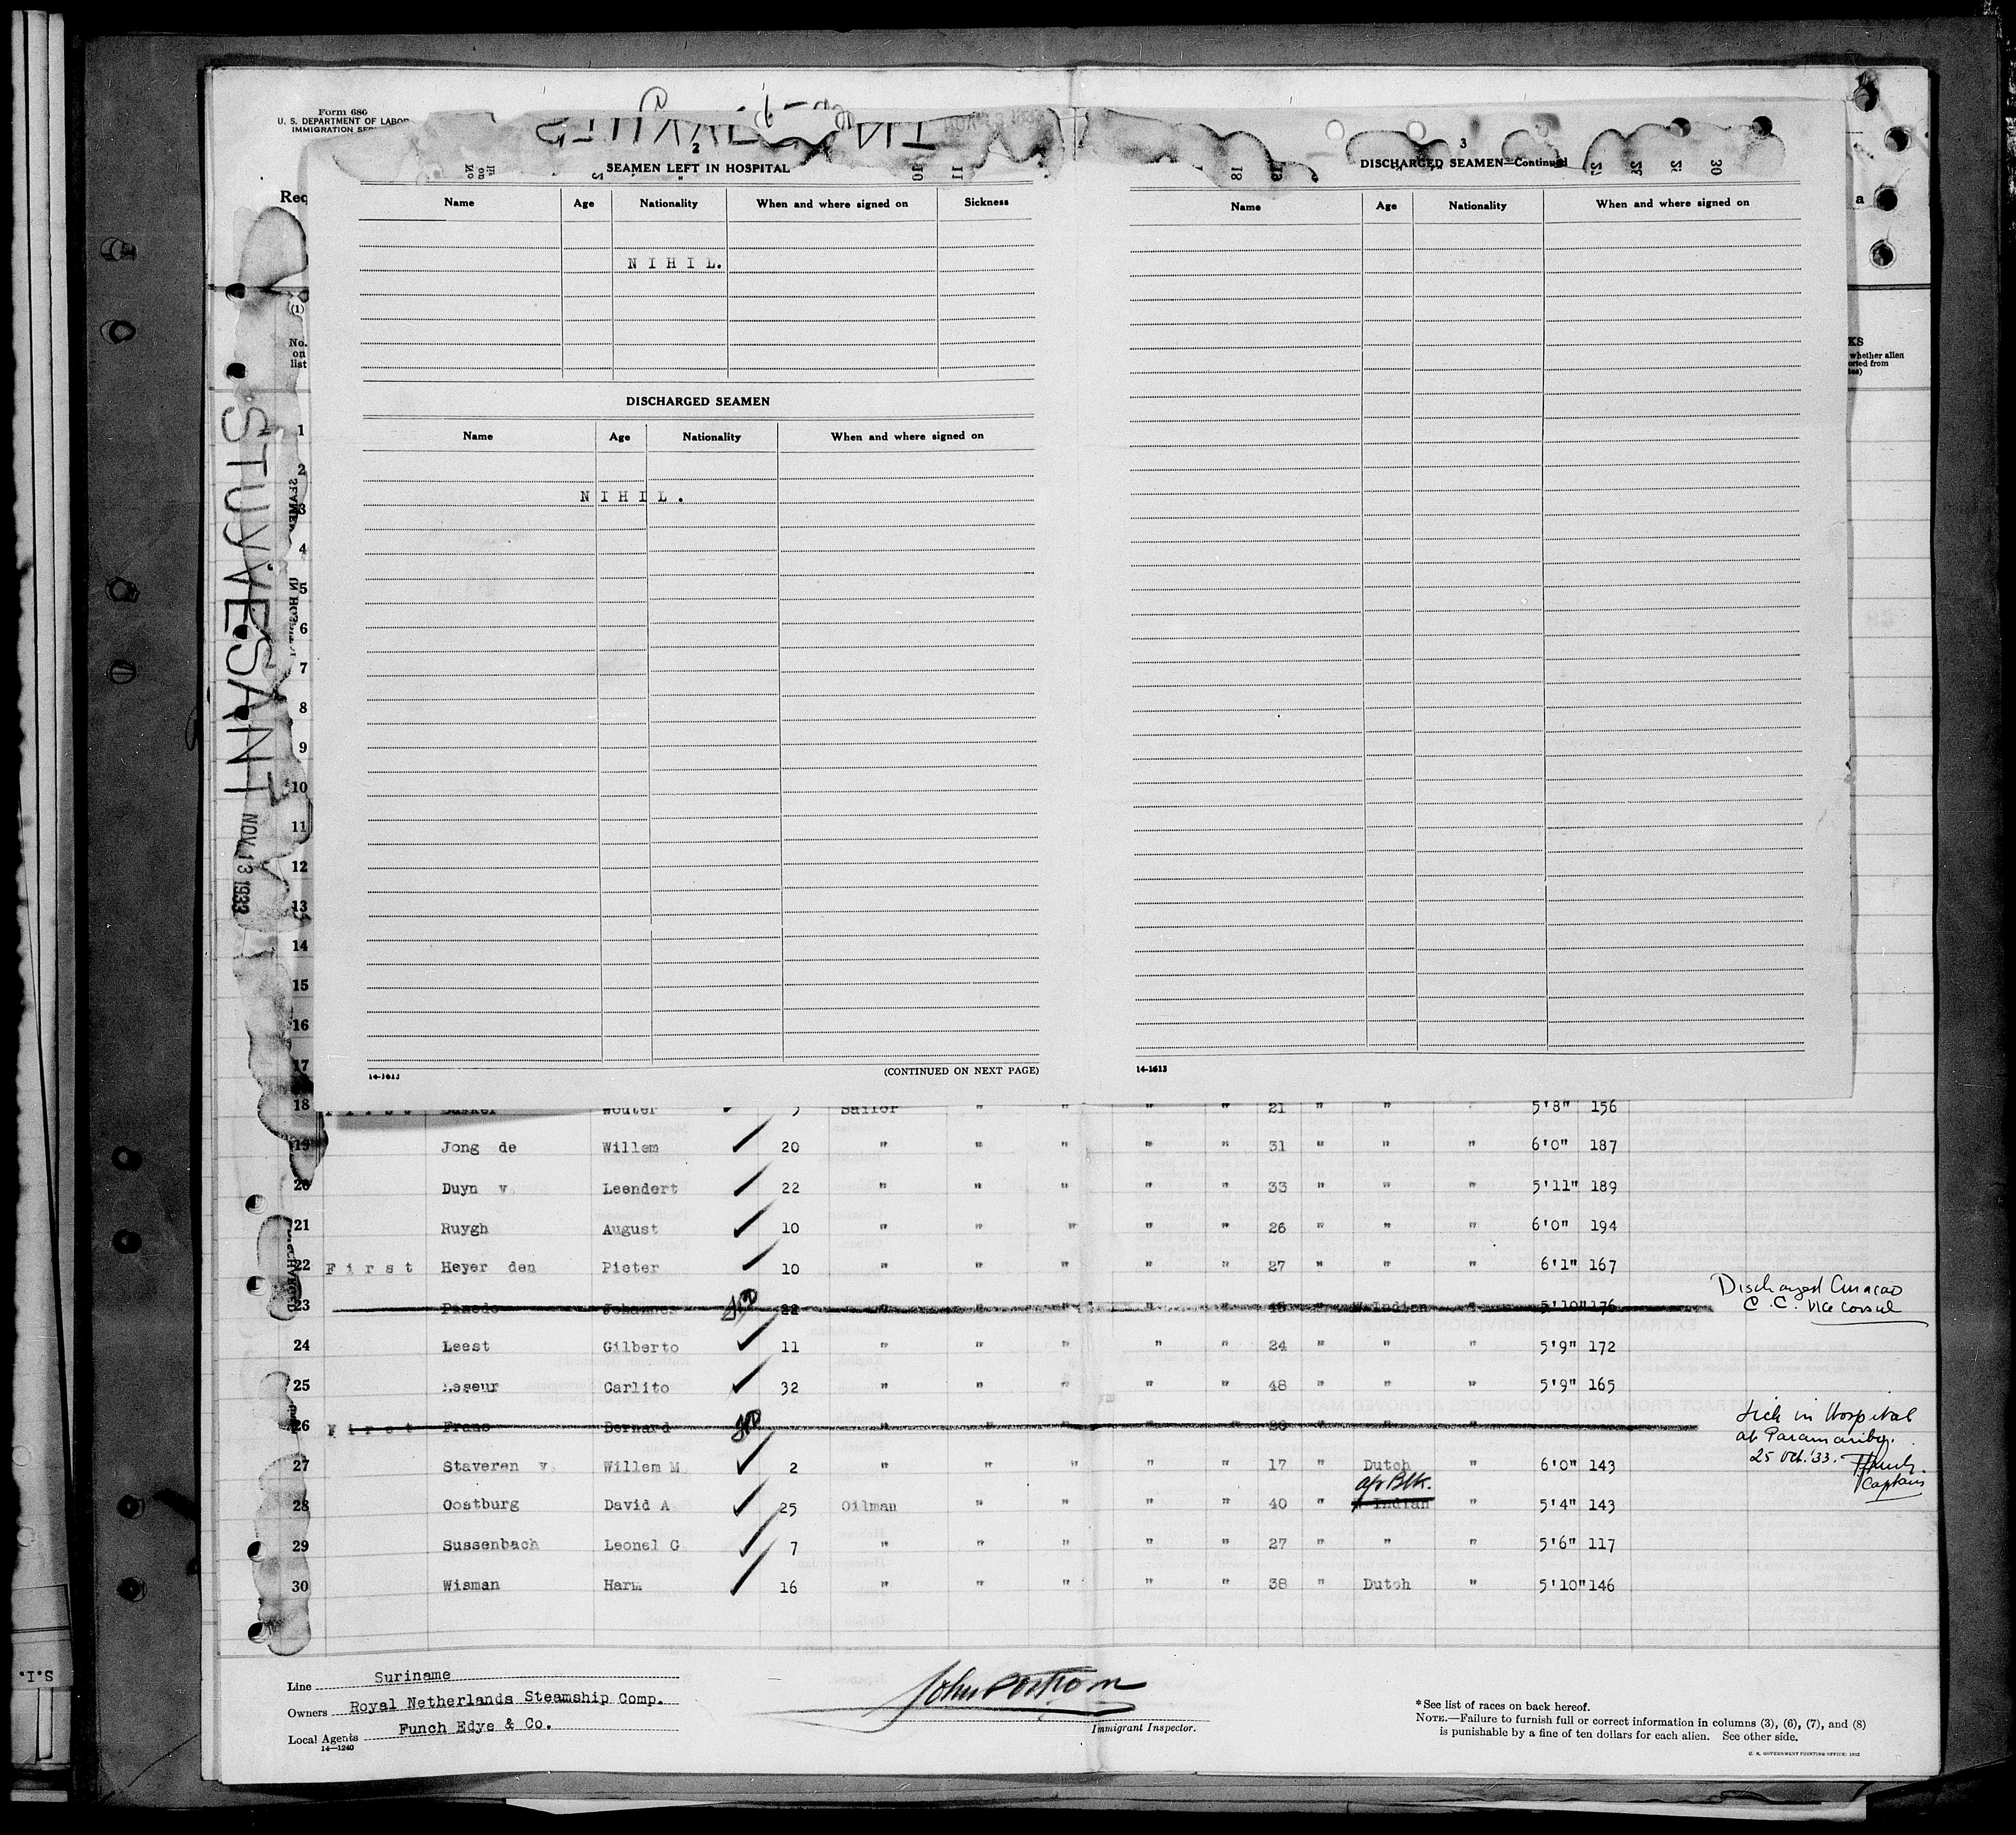 Form 680
U. S. DEPARTMENT OF LABOR
IMMIGRATION
STUYVESANT
NOV 13 1933
2
SEAMEN LEFT IN HOSPITAL
Name Age Nationality When and where signed on Sickness
N I H I L.
DISCHARGED SEAMEN
Name Age Nationality When and where signed on
N I H I L .
(CONTINUED ON NEXT PAGE)
14-1613
3
DISCHARGED SEAMEN—Continued
Name Age Nationality When and where signed on
14-1613
(1)
No.
on
list
KS
whether alien
1
2
3
4
5
6
7
8
9
10
11
12
13
14
15
16
17
18 Wouter Sailor " " " " 21 " " 5'8" 156
19 Jong de Willem 20 " " " " " 31 " " " 6'0" 187
20 Duyn v. Leendert 22 " " " " " 33 " " " 5'11" 189
21 Ruygh August 10 " " " " " 26 " " " 6'0" 194
22 F i r s t Heyer den Pieter 10 " " " " " 27 " " " 6'1" 167
23 Indian " 5'10" 176 Discharged Curacao
C. C. Vice Consul
24 Leest Gilberto 11 " " " " " 24 " " " 5'9" 172
25 Carlito 32 " " " " " 48 " " " 5'9" 165
26 F i r s t Frans Bernard " " " " " " " " Sick in Hospital
at Paramaribo.
25 Oct. '33.
Captain
27 Staveren v. Willem M 2 " " " " " 17 " Dutch " 6'0" 143
Afr Blk.
28 Oostburg David A 25 Oilman " " " " 40 " Indian " 5'4" 143
29 Sussenbach Leonel G 7 " " " " " 27 " " " 5'6" 117
30 Wisman Harm 16 " " " " " 38 " Dutch " 5'10" 146
Line Suriname
Owners Royal Netherlands Steamship Comp.
Local Agents Funch Edye & Co.
14—1240
Immigrant Inspector.
*See list of races on back hereof.
NOTE.—Failure to furnish full or correct information in columns (3), (6), (7), and (8)
is punishable by a fine of ten dollars for each alien. See other side.
U. S. GOVERNMENT PRINTING OFFICE: 1932
S.I.